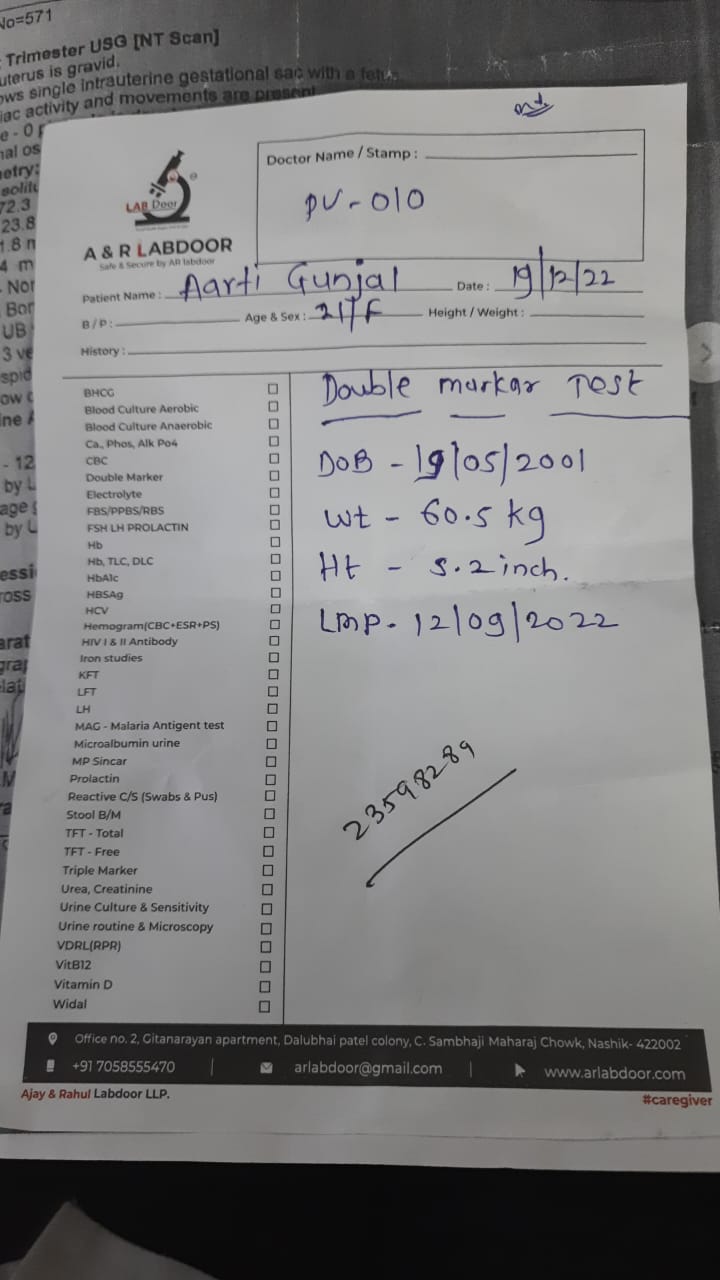 No=571
Trimester USG [NT Scan]
uterus is gravid.
ows single intrauterine gestational sac with a
iac activity and movements are present
e - 0
nal os
etry:
72.3
23.8
1.8 m
4 m
Nor
Bor
UB
3 ve
spid
ow
ine
- 12
by L
age
by L
essi
ross
arat
grap
elat
LAB Door
A & R LABDOOR
Safe & Secure by AR labdoor
Doctor Name / Stamp :
PV-010
Patient Name : Aarti Gunjal Date : 19/12/22
B / P : Age & Sex : 21/F Height / Weight :
History :
BHCG
Blood Culture Aerobic
Blood Culture Anaerobic
Ca., Phos, Alk Po4
CBC
Double Marker
Electrolyte
FBS/PPBS/RBS
FSH LH PROLACTIN
Hb
Hb, TLC, DLC
HbAlc
HBSAg
HCV
Hemogram(CBC+ESR+PS)
HIV I & II Antibody
Iron studies
KFT
LFT
LH
MAG - Malaria Antigent test
Microalbumin urine
MP Sincar
Prolactin
Reactive C/S (Swabs & Pus)
Stool B/M
TFT - Total
TFT - Free
Triple Marker
Urea, Creatinine
Urine Culture & Sensitivity
Urine routine & Microscopy
VDRL(RPR)
VitB12
Vitamin D
Widal
Double markar Test
DOB - 19/05/2001
Wt - 60.5 kg
Ht - 5.2 inch.
LMP - 12/09/2022
23598289
Office no. 2, Gitanarayan apartment, Dalubhai patel colony, C. Sambhaji Maharaj Chowk, Nashik- 422002
+91 7058555470 | arlabdoor@gmail.com | www.arlabdoor.com
Ajay & Rahul Labdoor LLP. #caregiver